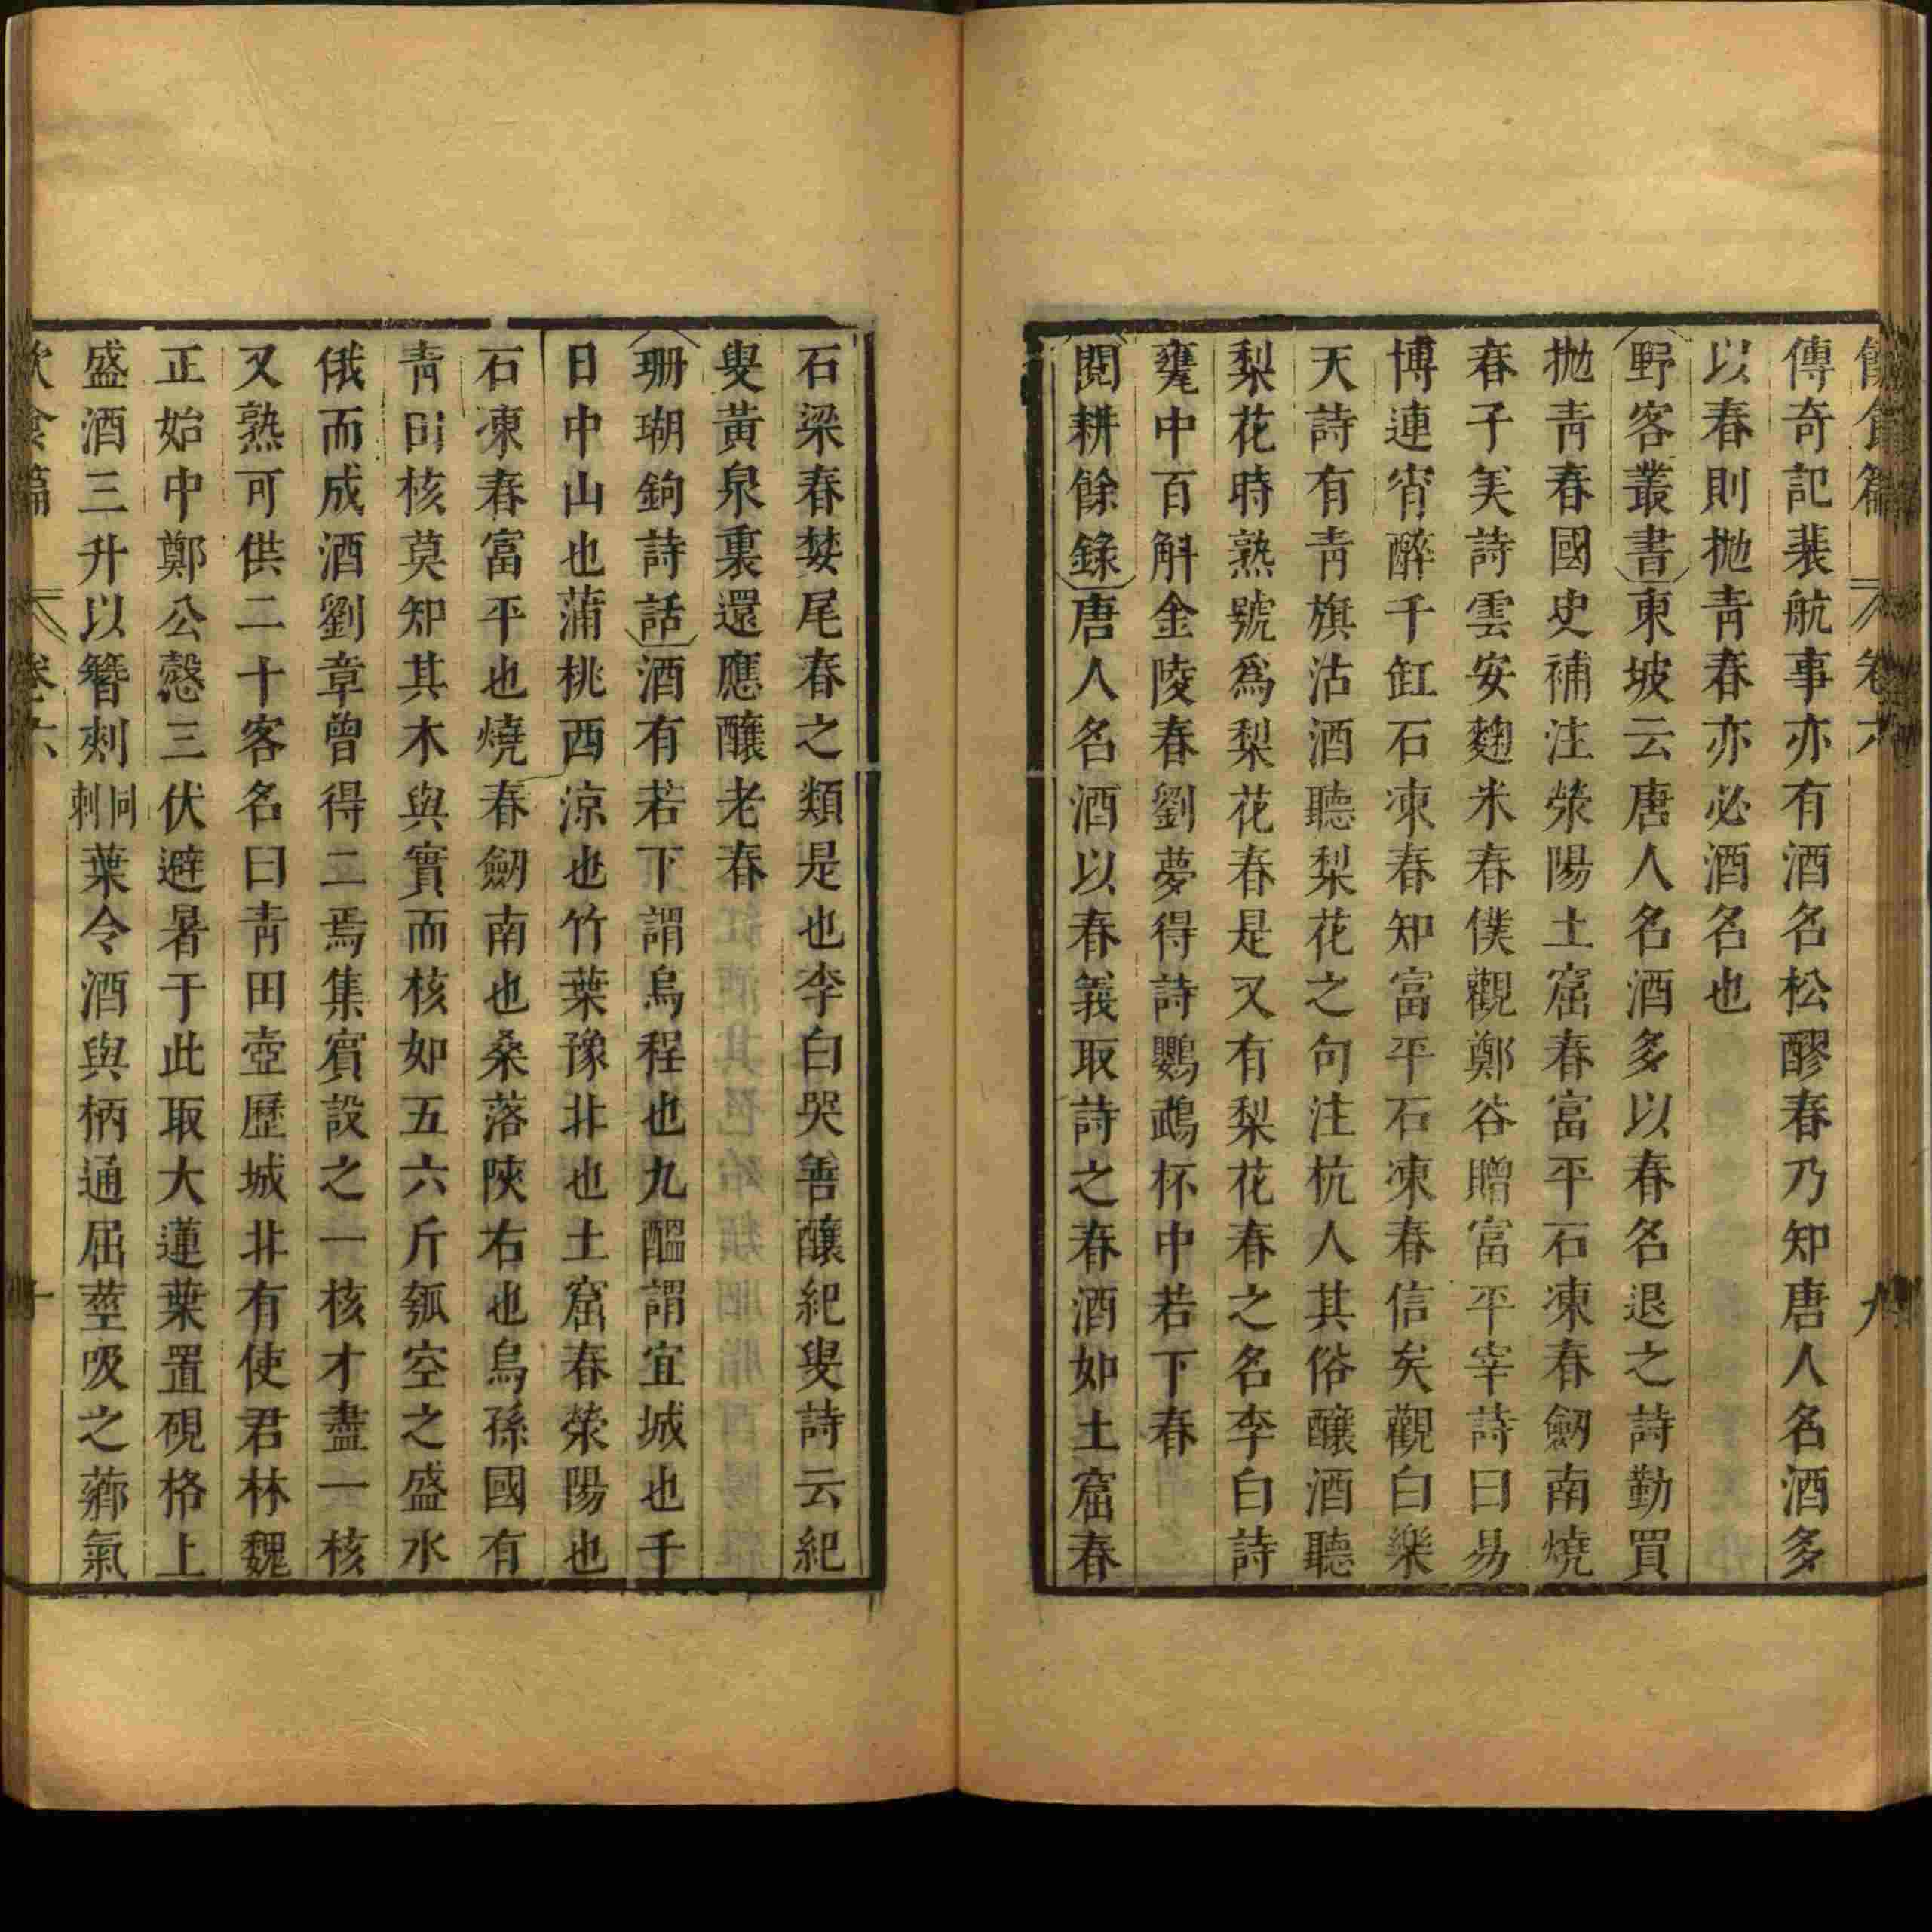 食篇 卷六 九
傳奇記裴航事亦有酒名松醪春乃知唐人名酒多
以春則抛青春亦必酒名也
野客叢書東坡云唐人名酒多以春名退之詩勤買
抛青春國史補注滎陽土窟春富平石凍春劒南燒
春子美詩雲安麴米春僕觀鄭谷贈富平宰詩曰易
博連宵醉千缸石凍春知富平石凍春信矣觀白樂
天詩有青旗沽酒聽梨花之句注杭人其俗釀酒聽
梨花時熟號爲梨花春是又有梨花春之名李白詩
甕中百斛金陵春劉夢得詩鸚鵡杯中若下春
閱耕餘錄唐人名酒以春義取詩之春酒如土窟春
石梁春婪尾春之類是也李白哭善釀紀叟詩云紀
叟黃泉裏還應釀老春
珊瑚鉤詩話酒有若下謂烏程也九醞謂宜城也千
日中山也蒲桃西涼也竹葉豫北也土窟春滎陽也
石凍春富平也燒春劒南也桑落陜右也烏孫國有
青田核莫知其木與實而核如五六斤瓠空之盛水
俄而成酒劉章曾得二焉集賓設之一核才盡一核
又熟可供二十客名曰青田壺歷城北有使君林魏
正始中鄭公慤三伏避暑于此取大蓮葉置硯格上
盛酒三升以簪刾同刺葉令酒與柄通屈莖吸之薌氣
飲食篇 卷六 十